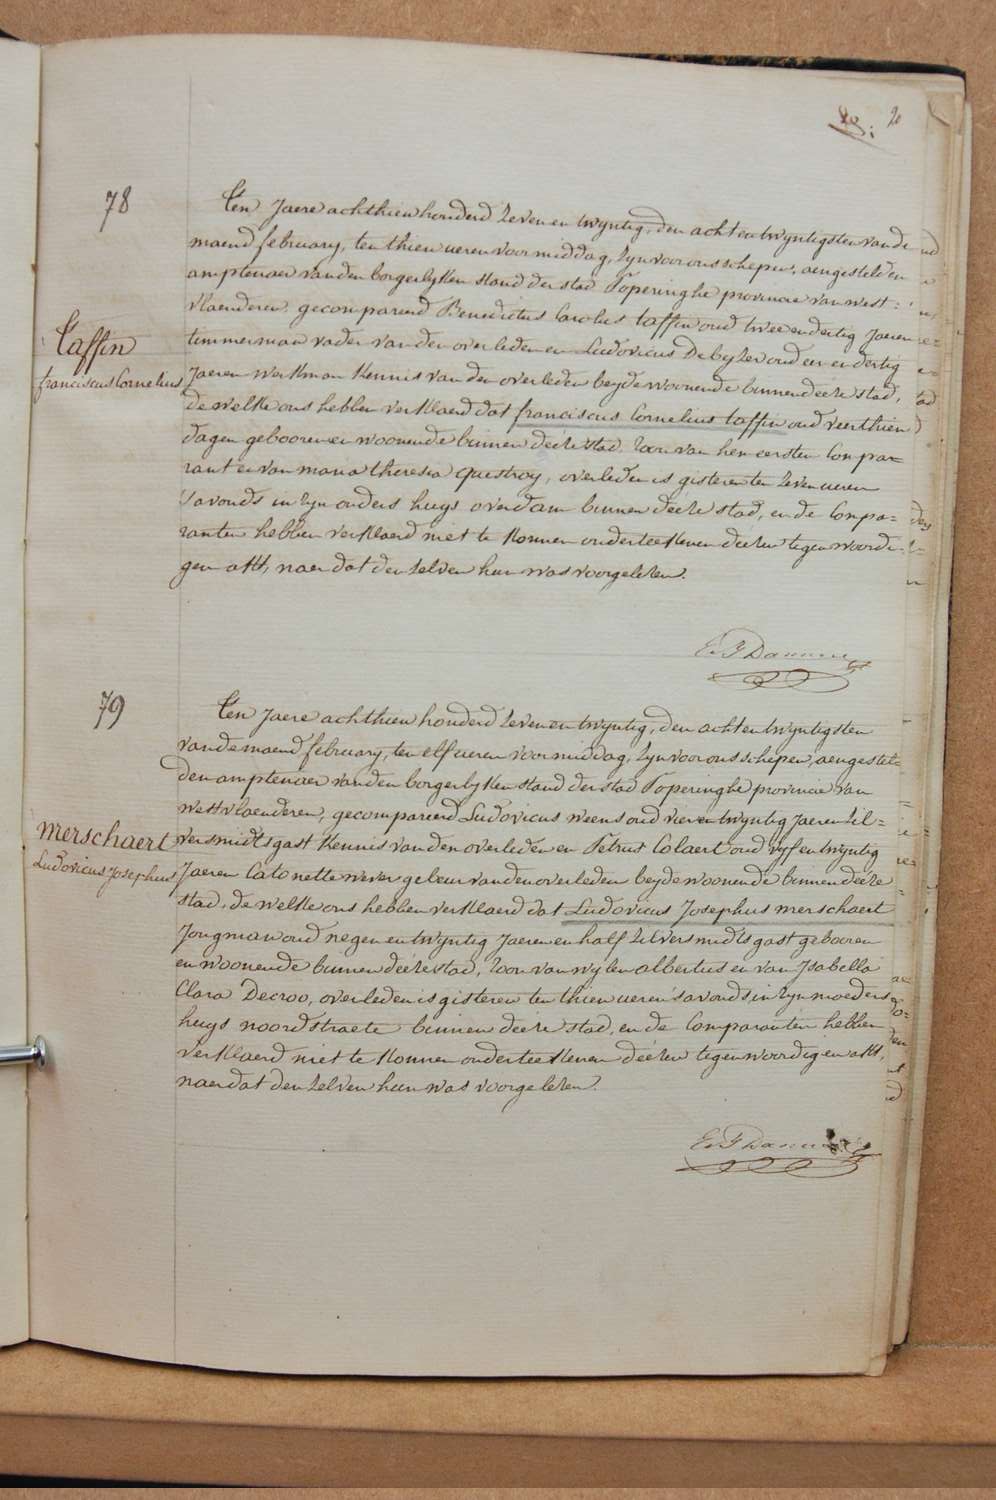 20
78
Ten Jaere achthien honderd zeven en twyntig, den acht en twyntigsten van de
maend february, ten thien ueren voormiddag, zyn voor ons schepen, aengestelden
amptenaer van den borgerlyken stand der stad Poperinghe provincie van west=
vlaenderen, gecompareerd Benedictus Carolus taffin oud twee en dertig Jaeren
timmerman vader van den overledenen Ludovicus Debyzer oud een en dertig
Jaeren werkman kennis van den overleden beyde woonende binnen deéze stad,
de welke ons hebben verklaerd dat franciscus Cornelius taffin oud veerthien
dagen geboren en woonende binnen deéze stad, zoon van hen eersten Compa=
rant en van maria theresia questroy, overleden is gisteren ten zeven ueren
s'avonds in zyn ouders huys overdam binnen deéze stad, en de Compa=
ranten hebben verklaerd niet te konnen onderteekenen deézen tegenwoordi=
gen akt, naer dat den zelven hun was voorgelezen.
Taffin
franciscus Cornelius
79
Ten Jaere achthien honderd zeven en twyntig, den acht en twyntigsten
van de maend february, ten elf ueren voormiddag, zyn voor ons schepen, aengestel=
den amptenaer van den borgerlyken stand der stad Poperinghe provincie van
westvlaenderen, gecompareerd Ludovicus weens oud vier en twyntig Jaeren zil=
versmidtsgast kennis van den overledenen Petrus Colaert oud vyf en twyntig
Jaeren Catonette wever gebeur van den overleden beyde woonende binnen deéze
stad, de welke ons hebben verklaerd dat Ludovicus Josephus merschaert
Jongman oud negen en twyntig Jaeren en half zilversmidtsgast gebooren
en woonende binnen deéze stad, zoon van wylen albertus en van Isabella
Clara Decroo, overleden is gisteren ten thien ueren s'avonds in zyn moeders
huys noordstraete binnen deéze stad, en de Comparanten hebben
verklaerd niet te konnen onderteekenen deézen tegenwoordigen akt,
naer dat den zelven hun was voorgelezen.
merschaert
Ludovicus Josephus